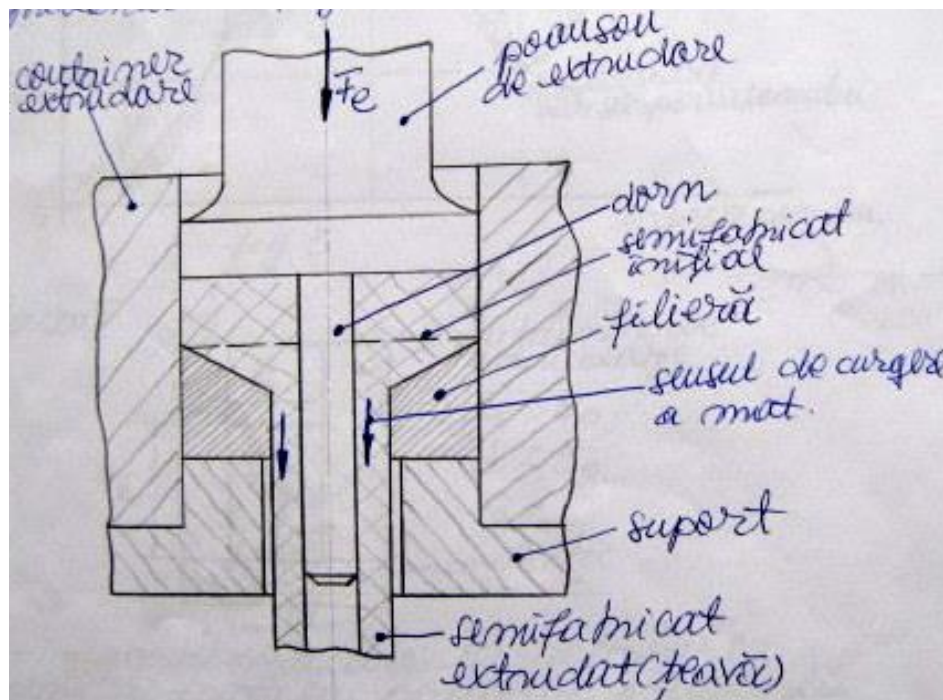 container
extrudare
Fe
poanson
de extrudare
dorn
semifabricat
inițial
filieră
sensul de curgere
a mat.
suport
semifabricat
extrudat (țeavă)